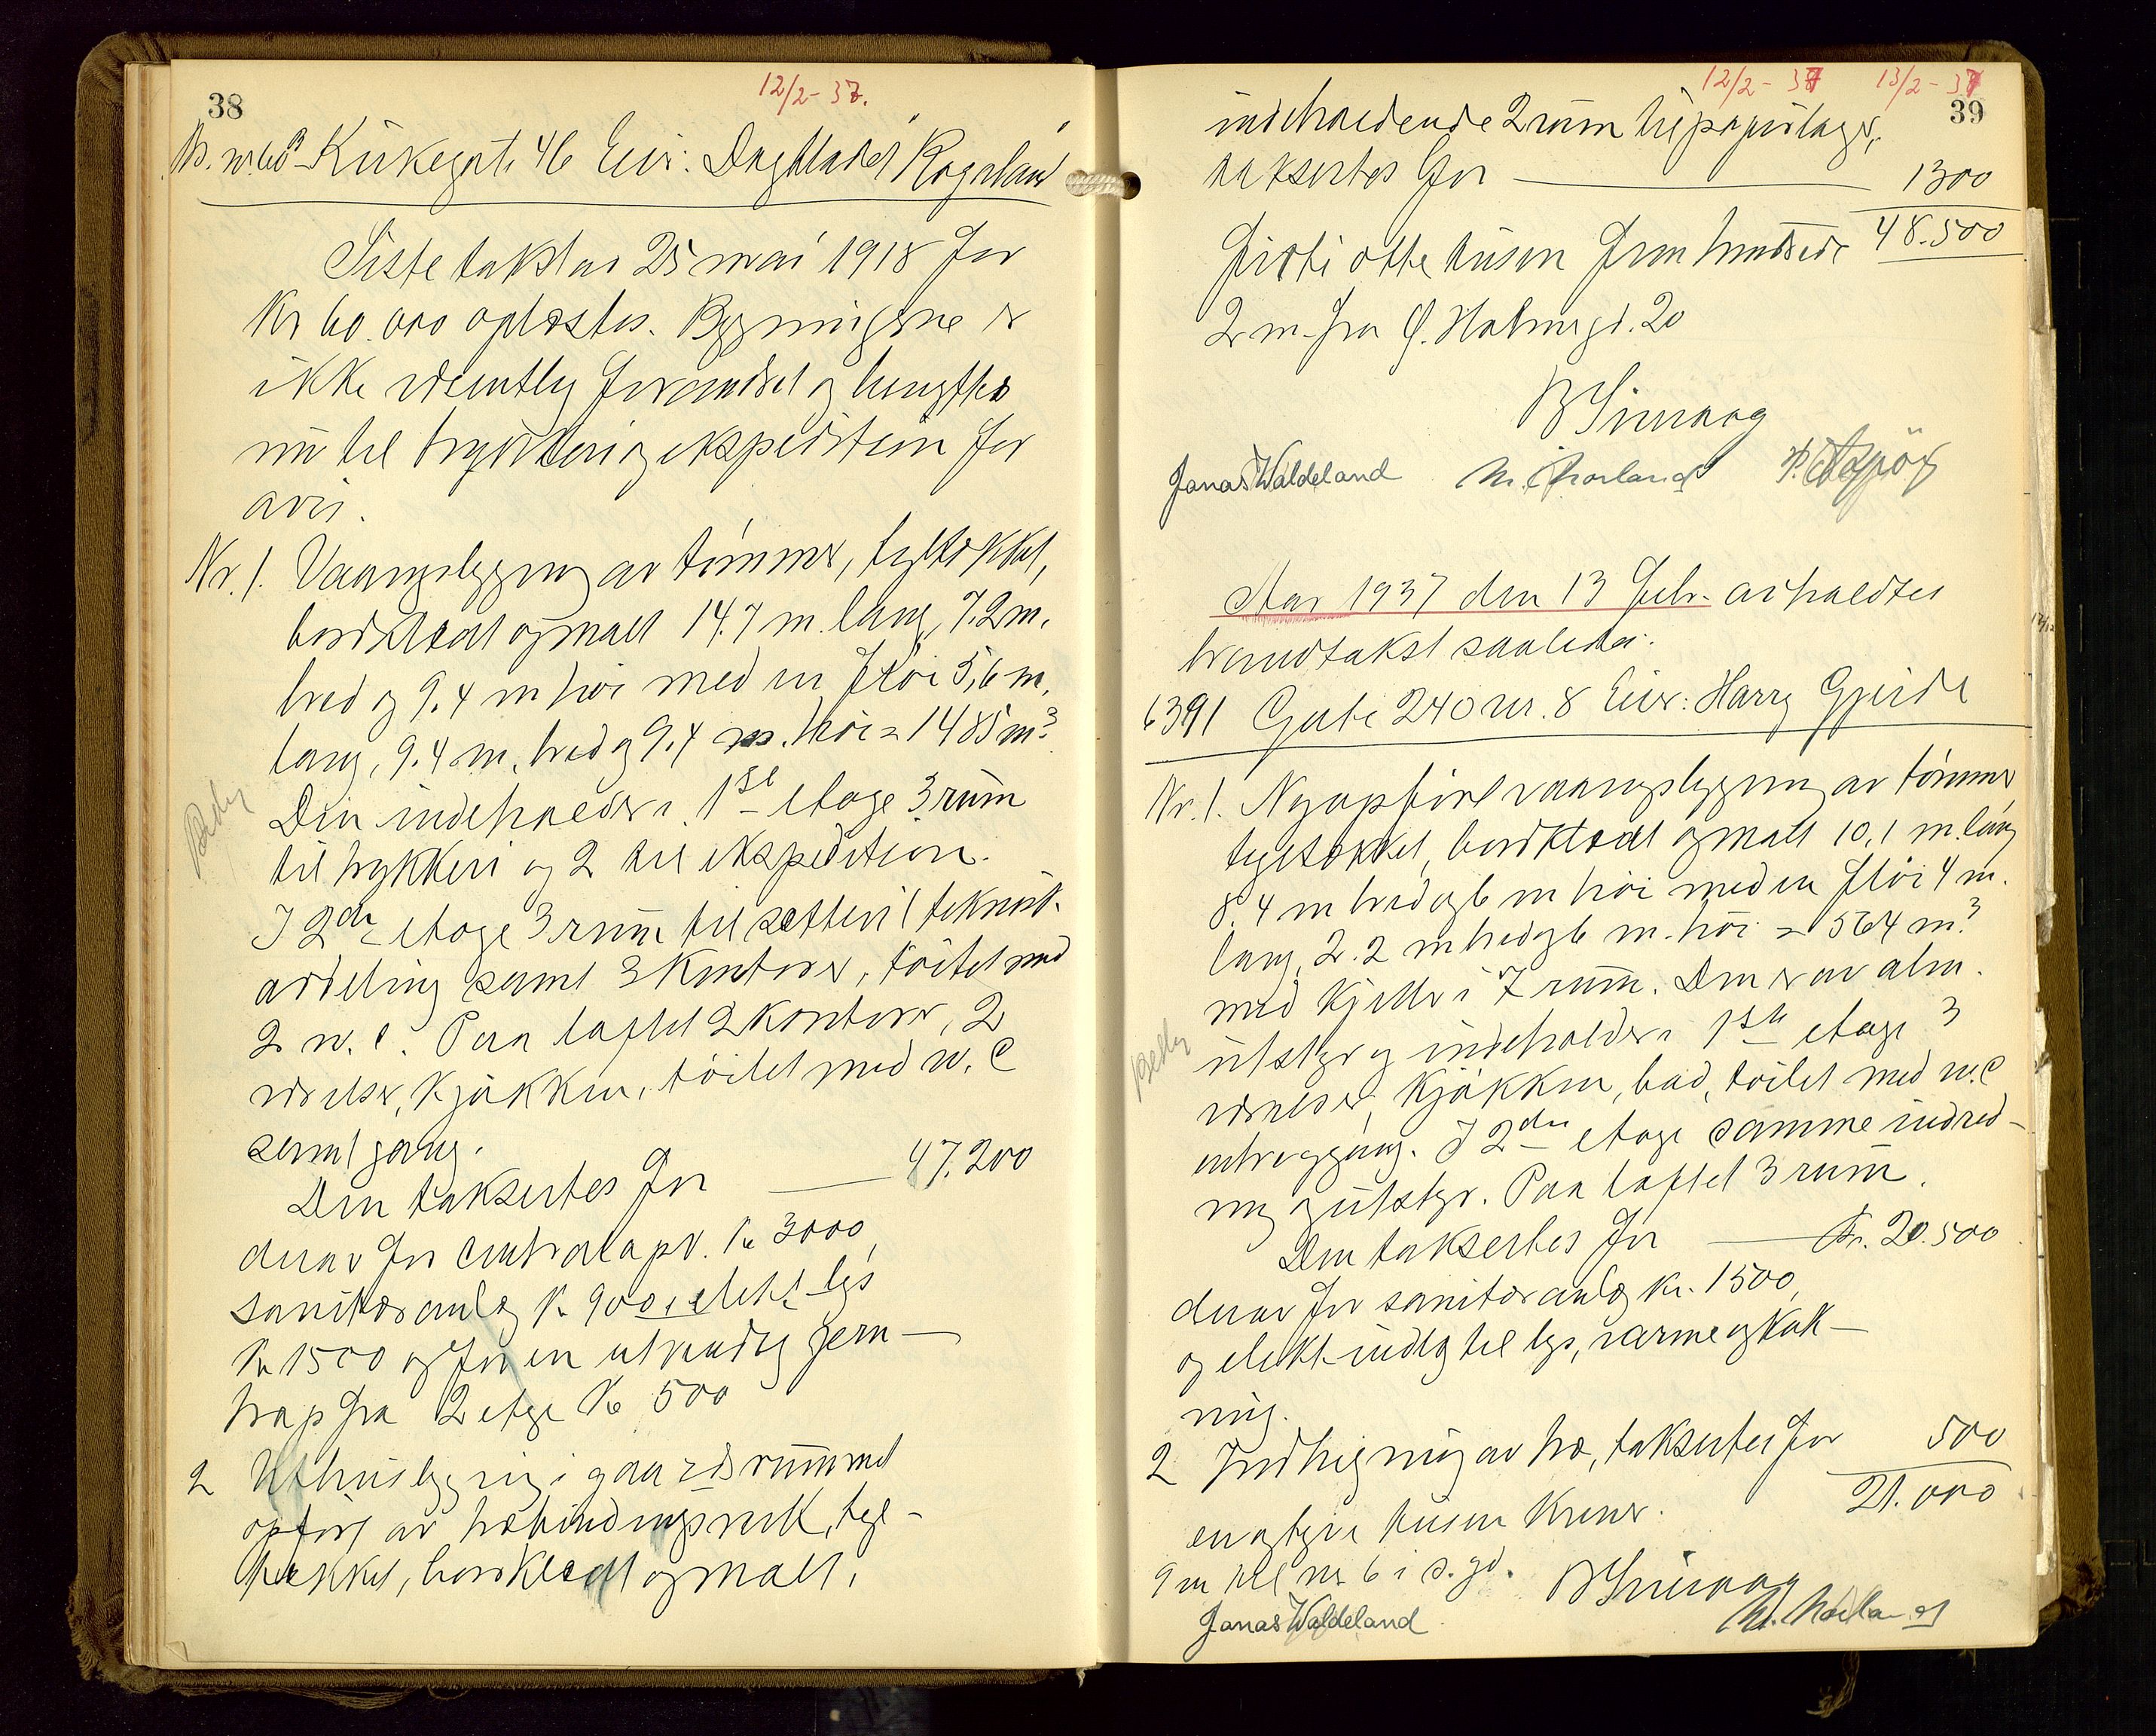 38
12/2-37.
Kirkegt. 46 Eier: Dagbladet "Rogaland"
Siste takst av 25 mai 1918 for
Kr 60.000 opløstes. Bygningene er
ikke vesentlig forandret og benyttes
nu til trykkeri og ekspedition for
avis.
Nr. 1. Vaaningsbygning av tømmer, tegltækket,
bordklædt og malt 14.7 m. lang, 7.2 m.
bred og 9.4 m høi med en fløi 5,6 m.
lang, 9.4 m. bred og 9.4 m. høi = 1485 m³
Den indeholder i 1ste etage 3 rum
til trykkeri og 2 til ekspedition.
I 2den etage 3 rum til sætteri (teknisk
avdeling samt 3 kontorer, toilet med
2 w.c. Paa loftet 2 kontorer, 2
værelser, kjøkken, toilet med w.c
samt gang.
Den takseres for — 47.200
derav for centralapv. kr 3000,
sanitæranlæg kr 900, elekt. lys
kr 1500 og for en utvendig jern-
trap fra 2 etage kr 500
2 Uthusbygning i gaardsrummet
opført av træbindingsverk, tegl-
tækket, bordklædt og malt,
12/2-37 13/2-37
39
indeholdende 2 rum til papirlager,
takseres for — 1300
48.500
Firti otte tusen fem hundrede
2 m fra Ø. Holmegt. 20
Jonas Waldeland
Aar 1937 den 13 febr. avholdtes
brandtakst saaledes:
6391 Gate 240 nr. 8 Eier: Harry Gjerde
Nr. 1. Nyopført vaaningsbygning av tømmer
tegltækket, bordklædt og malt 10,1 m. lang
8.4 m bred og 6 m høi med en fløi 4 m.
lang, 2.2 m bred og 6 m. høi = 564 m³
med kjeller i 7 rum. Den er av alm.
utstyr og indeholder i 1ste etage 3
værelser, kjøkken, bad, toilet med w.c
entregang. I 2den etage samme indred-
ning og utstyr. Paa loftet 3 rum.
Den takseres for — Kr. 20.500
derav for sanitæranlæg kr. 1500,
og elekt. indlæg til lys, varme og kok-
ning.
2 Indhegning av træ, takseres for 500
21.000
en og tyve tusen kroner.
9 m til nr 6 i s. gt.
Jonas Waldeland